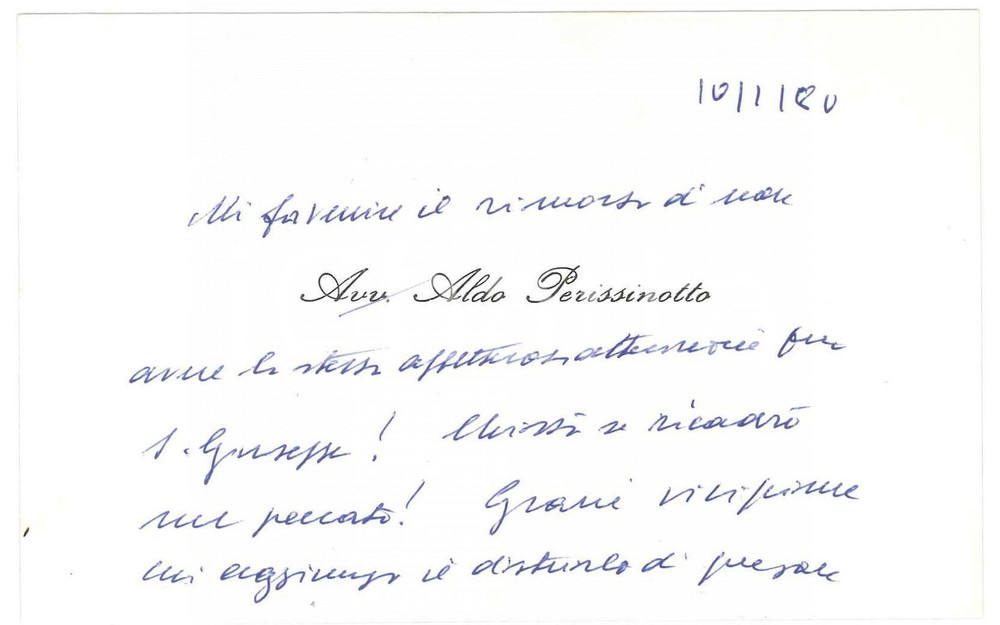 10/1/80
Mi fa venire il rimorso di non
Avv. Aldo Perissinotto
avere la stessa affettuosa attenzione per
S. Giuseppe! Chissà se ricadrò
nel peccato! Grazie vivissime
Mi aggiungo il disturbo di